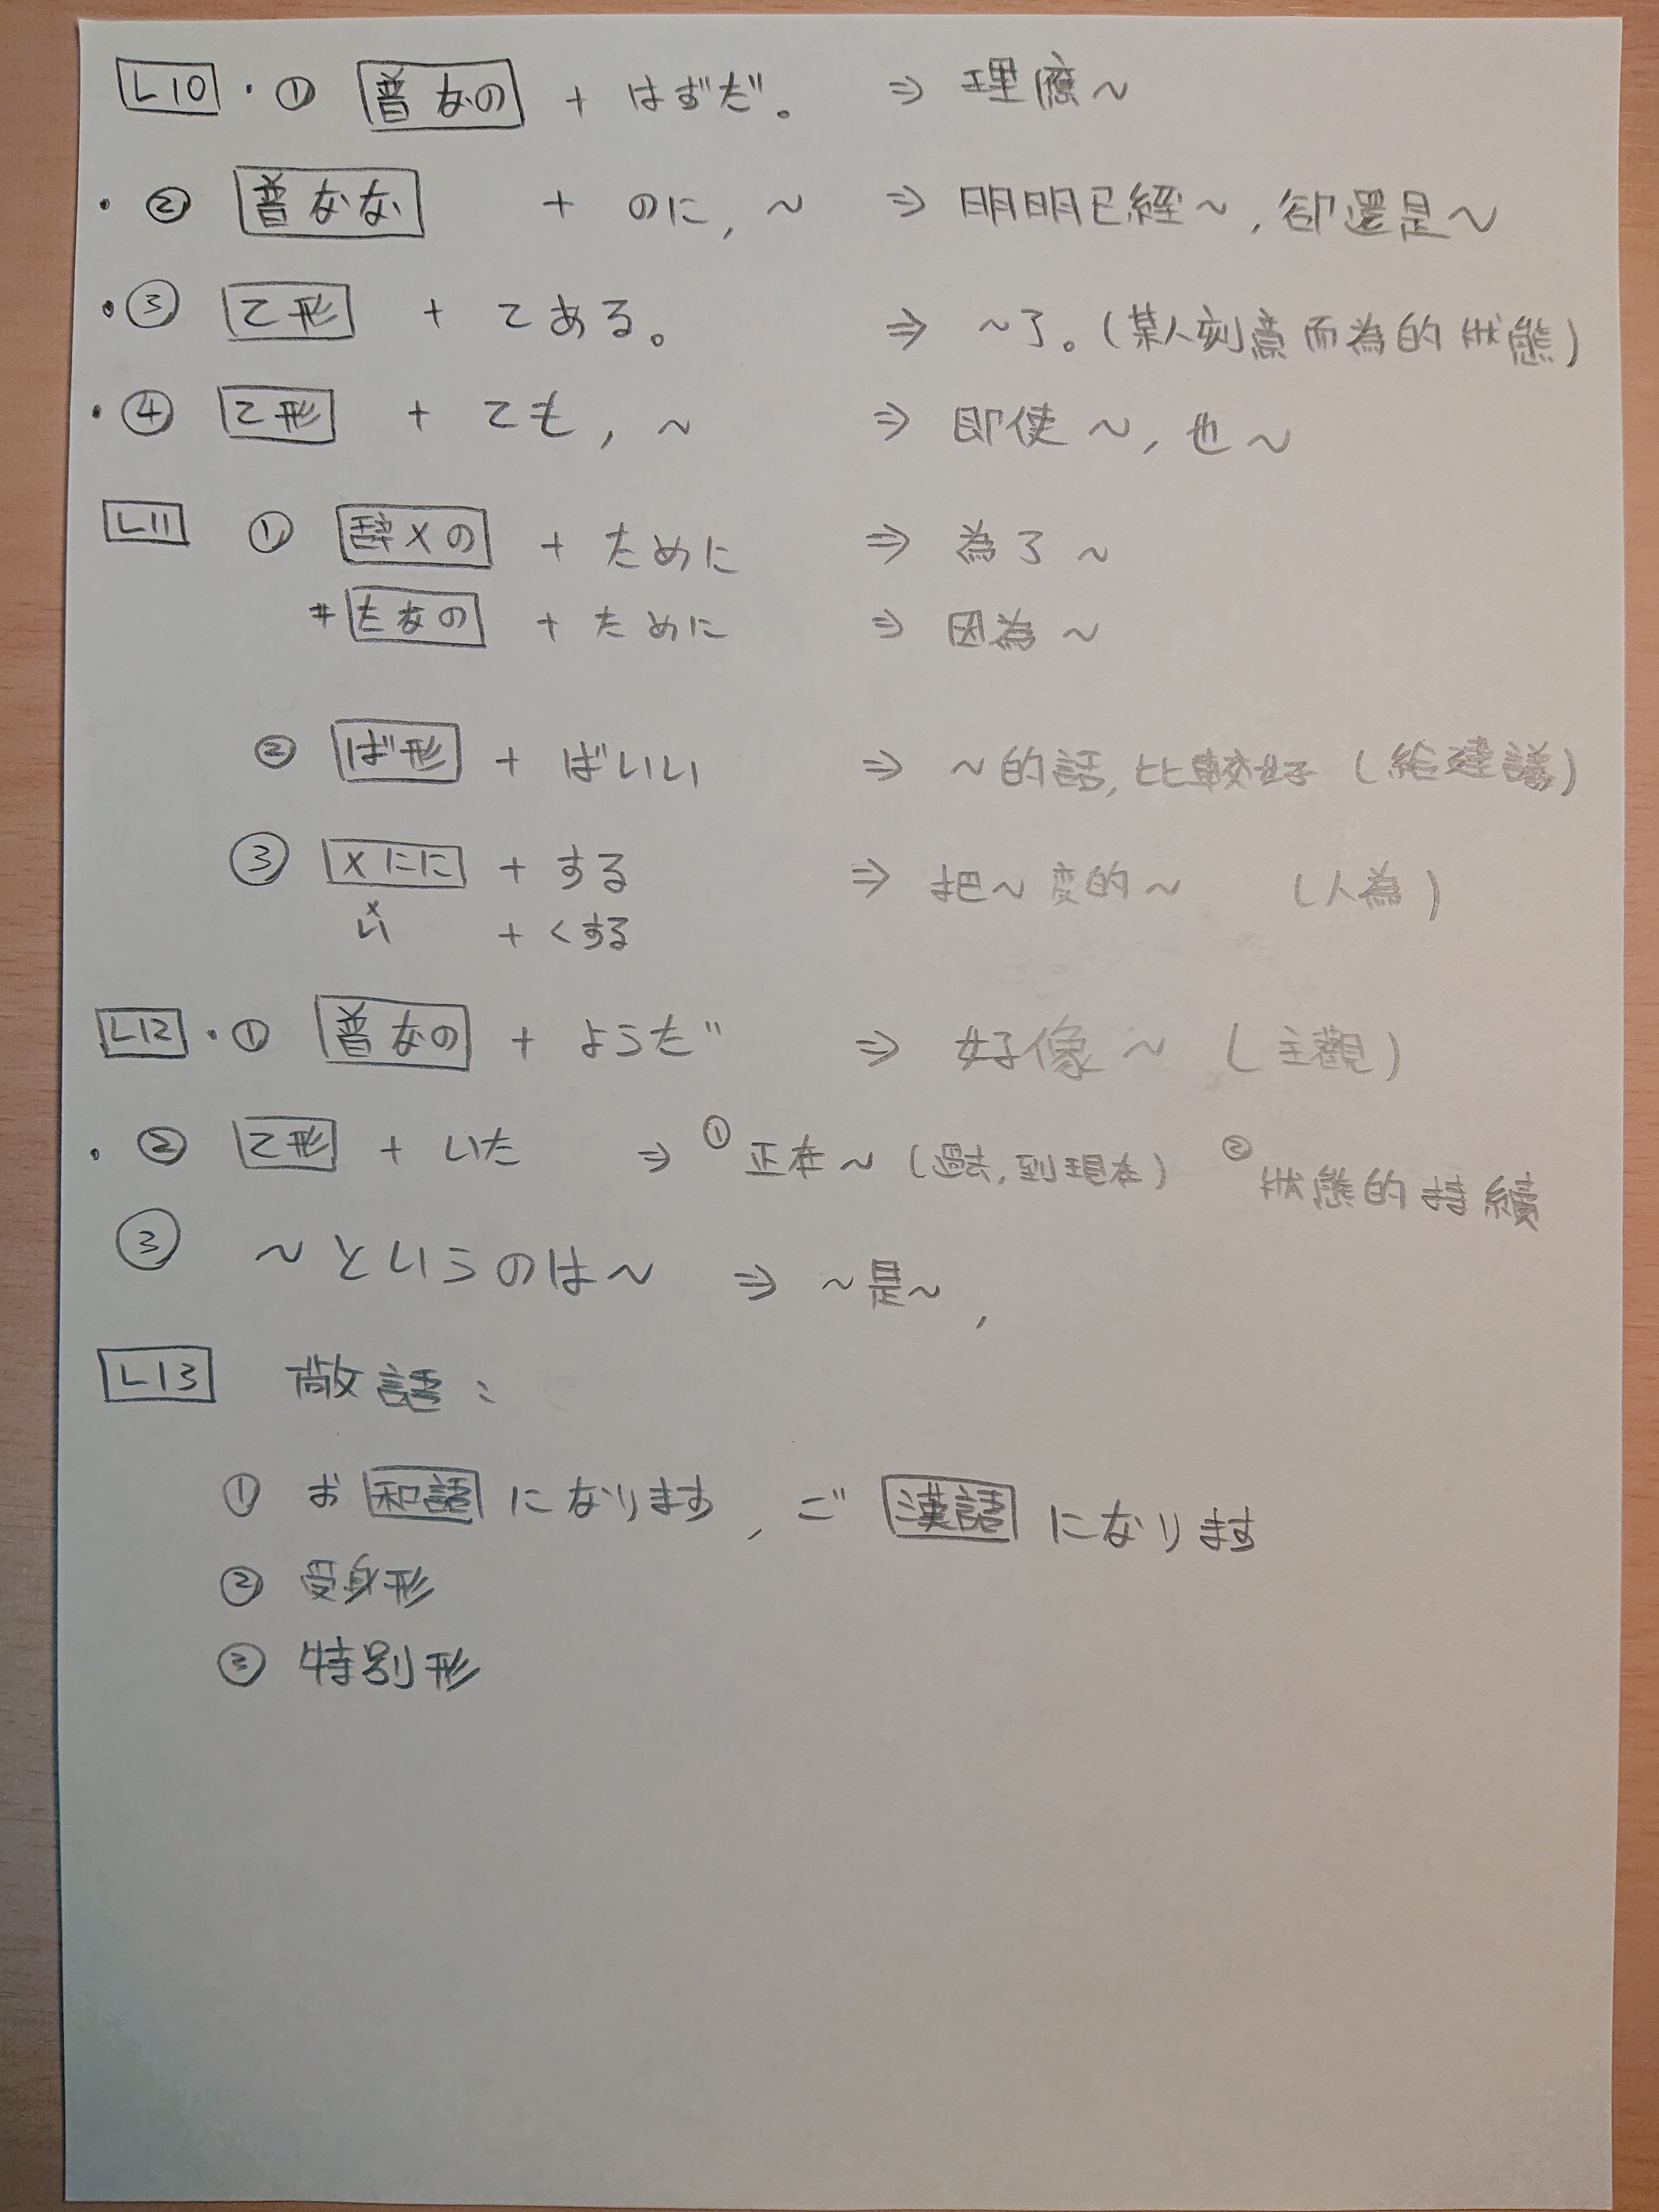 L10 · ① 普 なの + はずだ。 ⇒ 理應~
· ② 普 なな + のに, ~ ⇒ 明明已經~, 卻還是~
· ③ て形 + てある。 ⇒ ~了。(某人刻意而為的狀態)
· ④ て形 + ても, ~ ⇒ 即使~, 也~
L11 ① 辞×の + ために ⇒ 為了~
たなの + ために ⇒ 因為~
② ば形 + ばいい ⇒ ~的話, 比較好 (給建議)
③ ×にに + する ⇒ 把~變的~ (人為)
い + くする
L12 · ① 普 なの + ようだ ⇒ 好像~ (主觀)
· ② て形 + いた ⇒ ① 正在~ (過去, 到現在) ② 狀態的持續
③ ~というのは~ ⇒ ~是~,
L13 敬語:
① お 和語 になります, ご 漢語 になります
② 受身形
③ 特別形